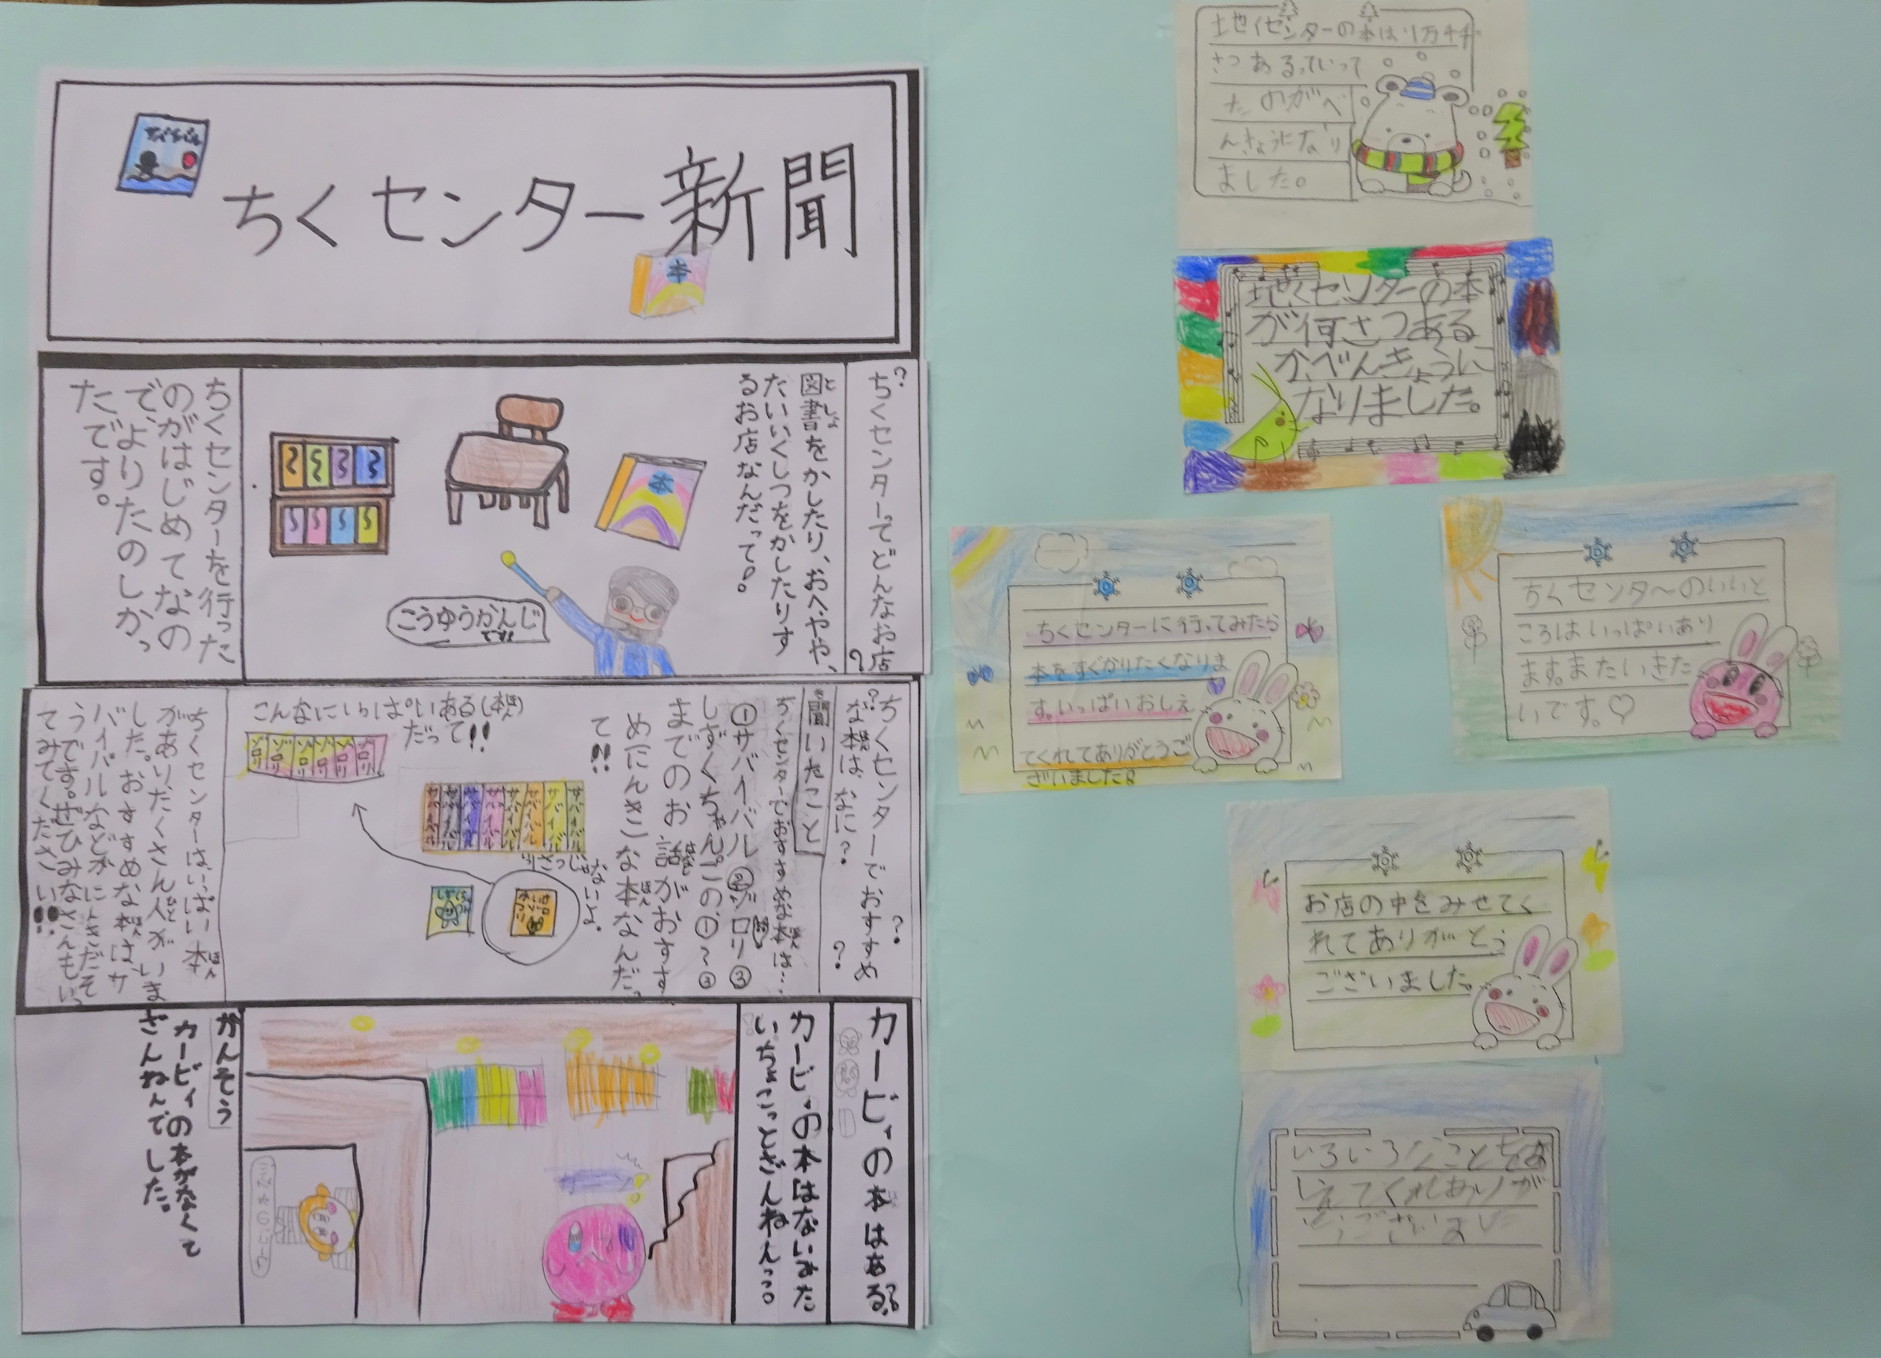 サバイバル
ちくセンター新聞
本
ちくセンターでどんなお店?
図書をかしたり、おへやや、
たいいくしつをかしたりす
るお店なんだって!
本
こうゆうかんじ
です!!
ちくセンターを行った
のがはじめてなの
で、よりたのしかっ
たです。
ちくセンターでおすすめ
な本は、なに?
聞いたこと
ちくセンターでおすすめな本は…
①サバイバル②ゾロリ③
しずくちゃんこの、①~③
までのお話がおすす
めにんきな本なんだっ
て!!
サバイバル
サバイバル
サバイバル
サバイバル
サバイバル
サバイバル
サバイバル
サバイバル
1さつじ
ゃないよ。
こんなにいっぱいある(本)
だって!!
ゾロリ
ゾロリ
ゾロリ
ゾロリ
ゾロリ
ゾロリ
ちくセンターは、いっぱい本
があり、たくさん人がいま
した。おすすめな本は、サ
バイバルなどがにんきだそ
うです。ぜひみなさんもいっ
てみてください!!
カービィの本はある?
カービィの本はないみた
いちょこっとざんねんっ…
かんそう
カービィの本がなくて
ざんねんでした。
地くセンターの本は1万千
さつあるっていって
たのがべ
んきょうになり
ました。
地くセンターの本
が何さつある
か、べんきょうに
なりました。
ちくセンターに行ってみたら
本をすぐかりたくなりま
す。いっぱいおしえ
てくれてありがとうご
ざいました!
ちくセンターのいいと
ころはいっぱいあり
ます。またいきた
いです。♡
お店の中をみせてく
れてありがとう
ございました。
いろいろなことをお
しえてくれありが
とうございました